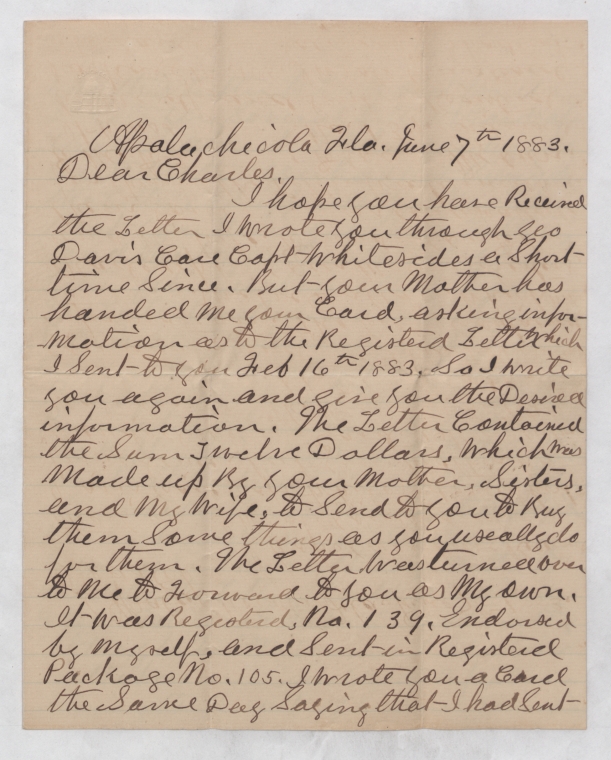 Apalachicola Fla. June 7th 1883.
Dear Charles.
I hope you have Received
the Letter I wrote you through Geo
Davis Care Capt Whitesides a Short
time Since. But your Mother has
handed me your Card, asking infor-
mation as to the Registerd Letter which
I Sent to you Feb 16th 1883. So I write
you again and give you the Desired
information. The Letter Contained
the Sum Twelve Dollars, which was
Made up By your Mother, Sisters,
and My Wife, to Send to you to Buy
them Some things as you useally do
for them. The Letter was turned over
to Me to Forward to you as My own.
It was Registerd, No. 139. Endorsed
by Myself, and Sent in Registerd
Package No. 105. I wrote you a Card
the Same Day Saying that I had Sent